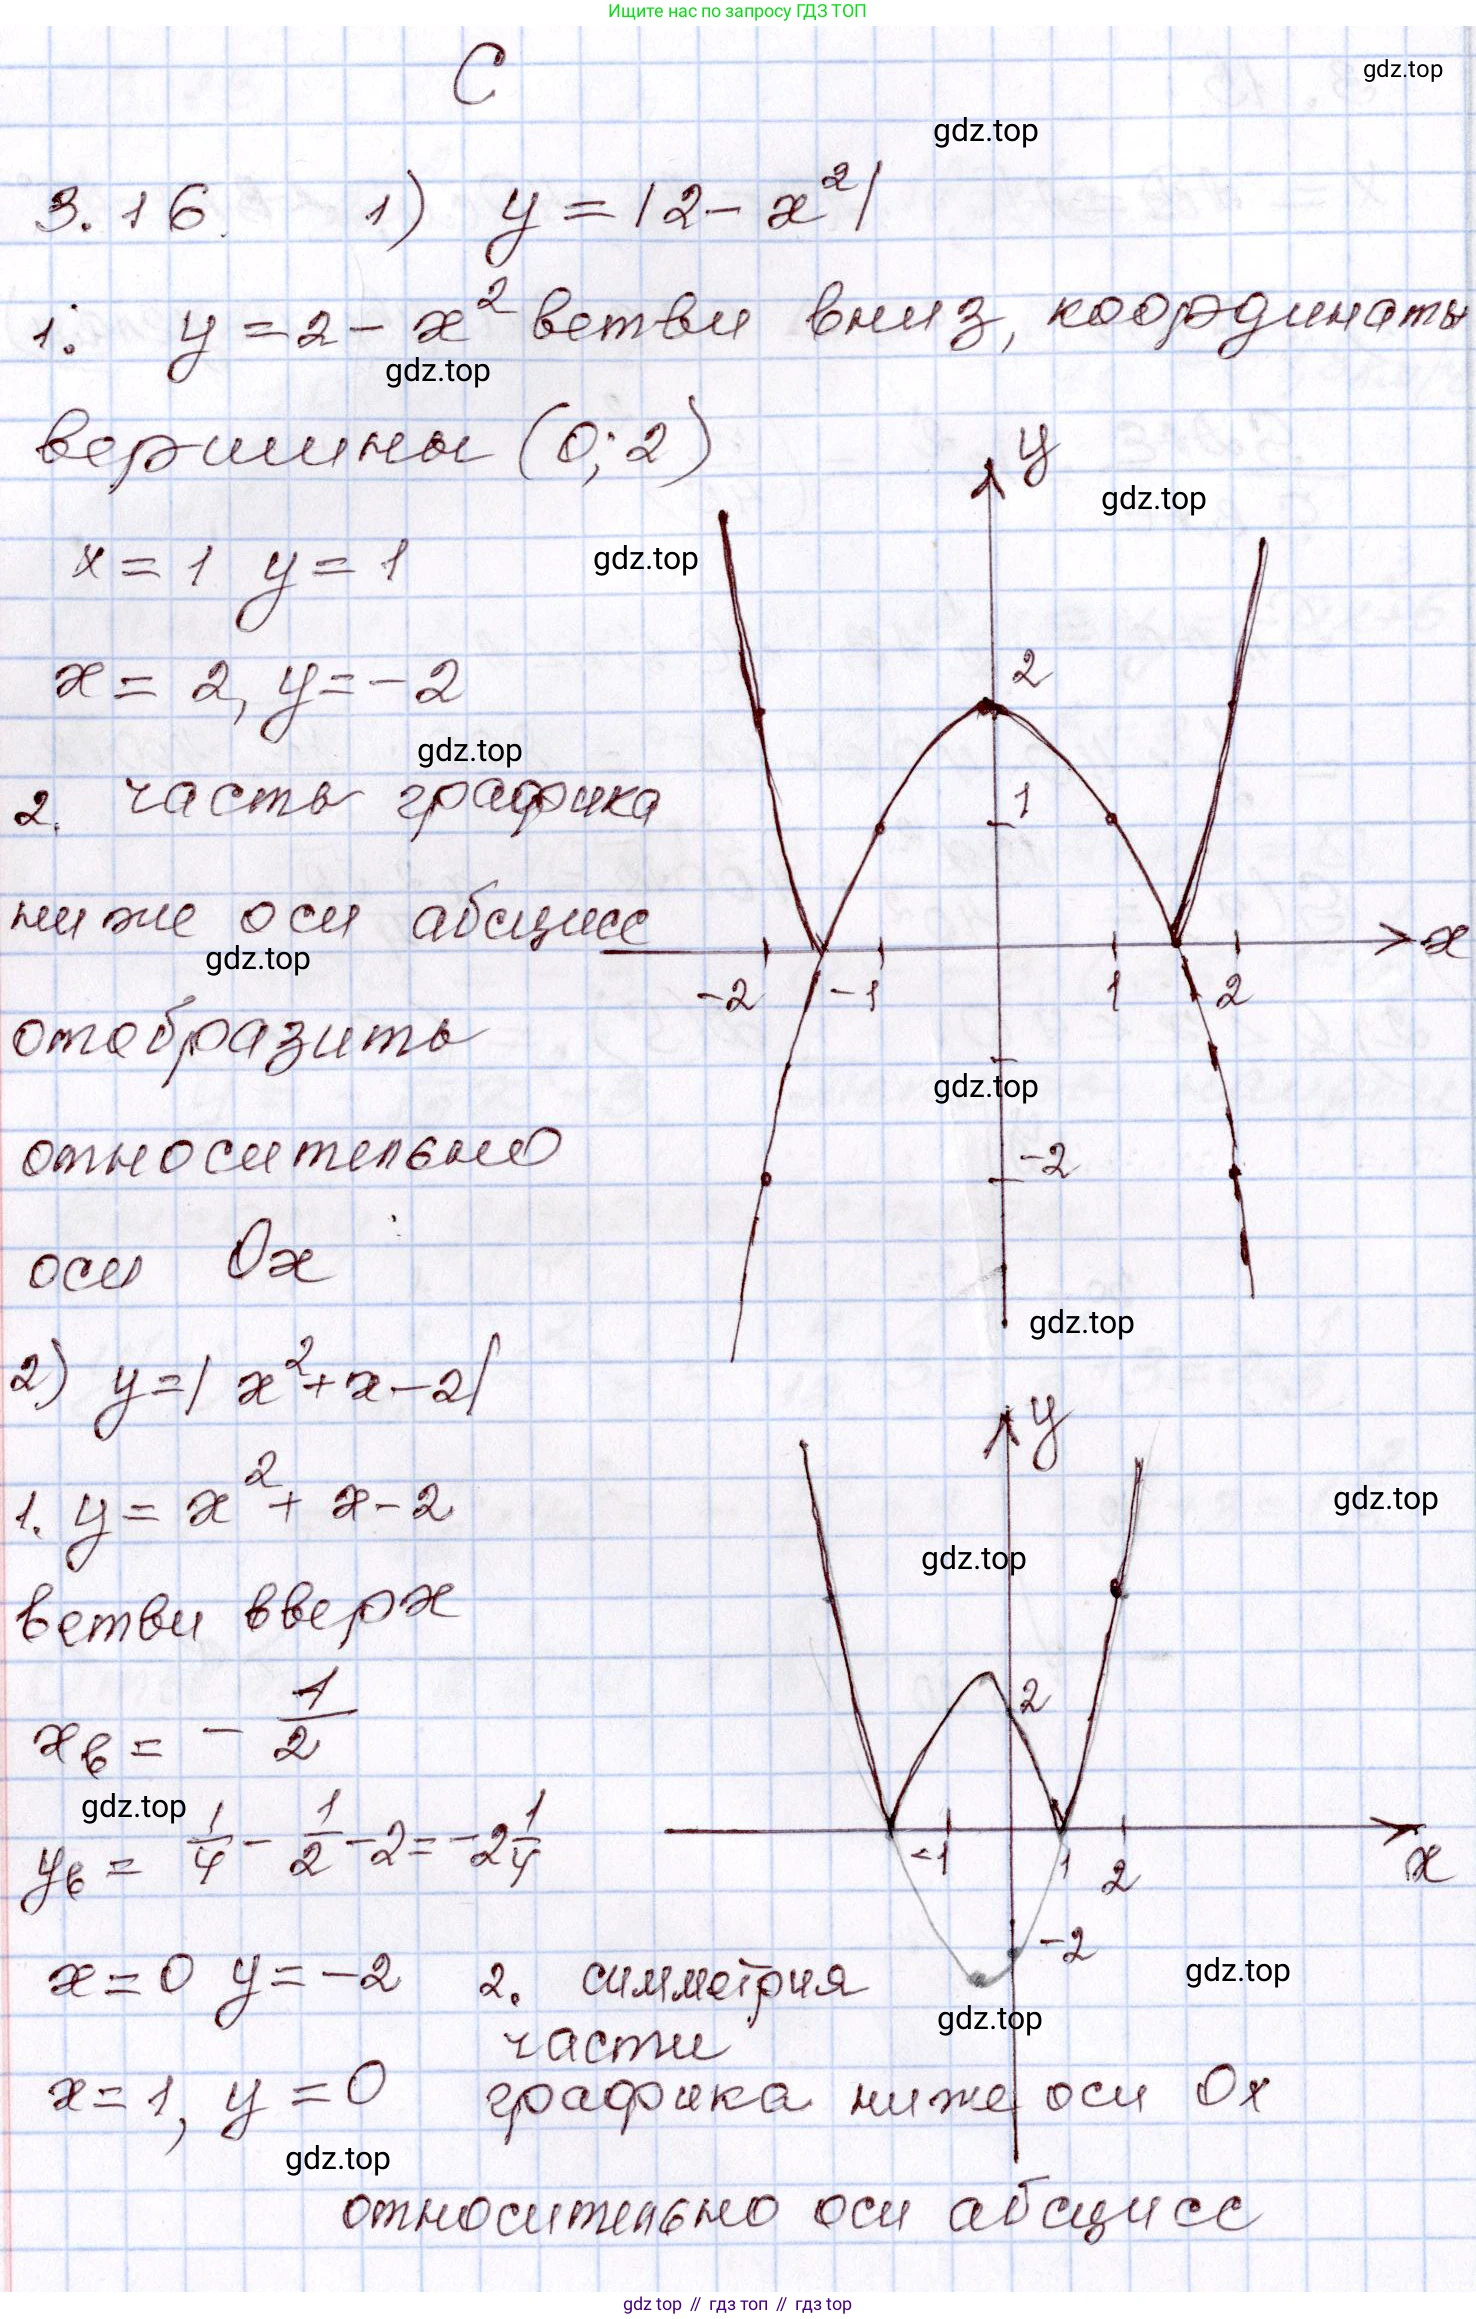 Ищите нас по запросу ГДЗ ТОП
С
gdz.top
gdz.top
3.16. 1) y = |2 - x²|
1. y = 2 - x² ветви вниз, координаты
gdz.top
вершины (0; 2)
y
gdz.top
x = 1 y = 1
gdz.top
x = 2, y = -2
2
gdz.top
2. часть графика
1
ниже оси абсцисс
gdz.top
x
-2 -1 1 2
отобразить
gdz.top
относительно
-2
оси Ox
gdz.top
2) y = |x² + x - 2|
y
1. y = x² + x - 2
gdz.top
gdz.top
ветви вверх
xв = - 1/2
2
gdz.top
yв = 1/4 - 1/2 - 2 = -2 1/4
-1 1 2 x
-2
x = 0 y = -2 2. симметрия
gdz.top
gdz.top
части
x = 1, y = 0 графика ниже оси Ox
gdz.top
относительно оси абсцисс
gdz top // гдз топ // гдз top